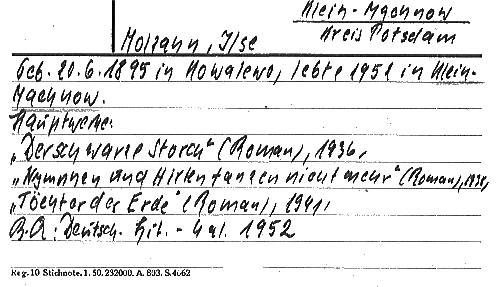 Klein-Machnow
Kreis Potsdam
Molzann, Ilse
Geb. 20.6.1895 in Kowalewo, lebte 1951 in Klein-
Machnow.
Hauptwerke:
„Der schwarze Storch" (Roman), 1936,
„Nymphen und Hirten tanzen nicht mehr" (Roman), 1938,
„Töchter der Erde" (Roman), 1941,
B.A.: Deutsch. Lit.-Kal. 1952
Reg. 10 Stichnote. 1. 50. 232000. A. 803. S. 4662